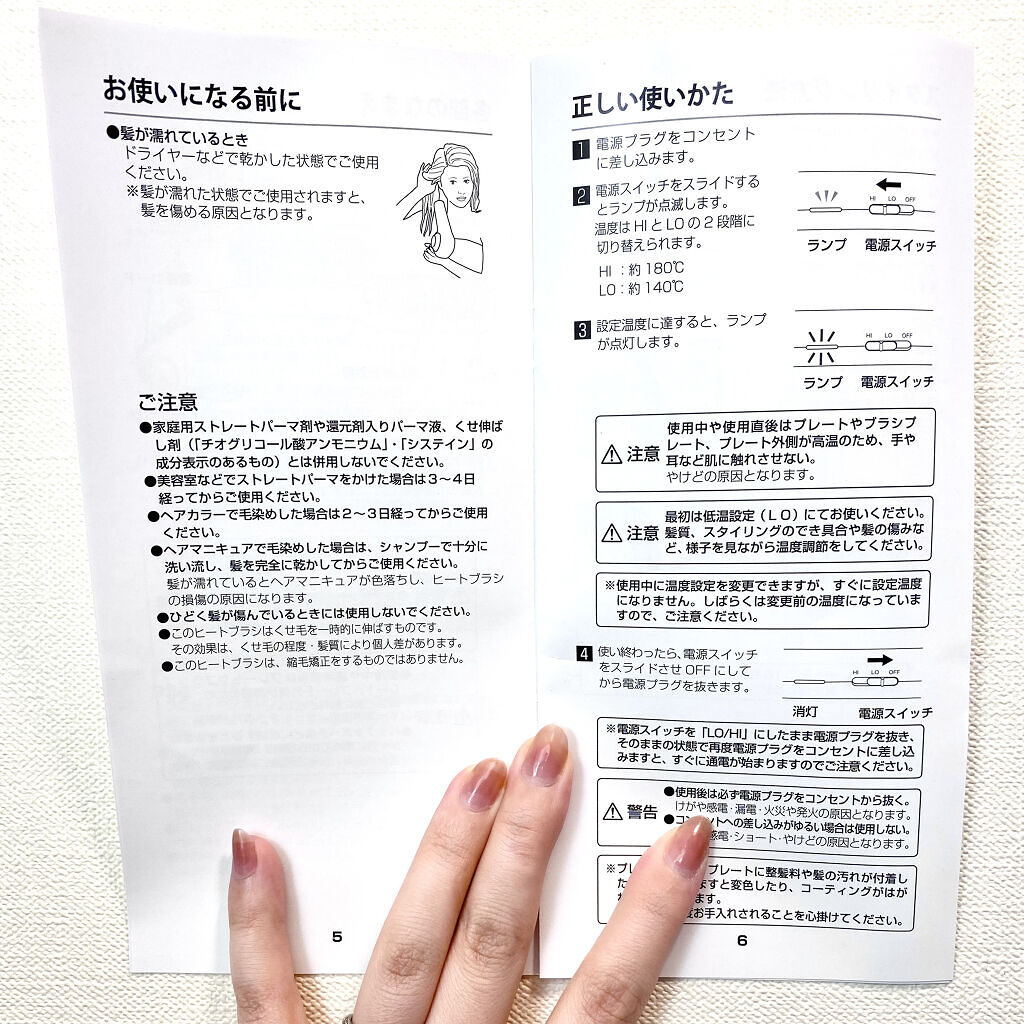 お使いになる前に
●髪が濡れているとき
ドライヤーなどで乾かした状態でご使用
ください。
※髪が濡れた状態でご使用されますと、
髪を傷める原因となります。
ご注意
●家庭用ストレートパーマ剤や還元剤入りパーマ液、くせ伸ば
し剤(「チオグリコール酸アンモニウム」・「システイン」の
成分表示のあるもの）とは併用しないでください。
●美容室などでストレートパーマをかけた場合は３～４日
経ってからご使用ください。
●ヘアカラーで毛染めした場合は２～３日経ってからご使用
ください。
●ヘアマニキュアで毛染めした場合は、シャンプーで十分に
洗い流し、髪を完全に乾かしてからご使用ください。
髪が濡れているとヘアマニキュアが色落ちし、ヒートブラシ
の損傷の原因になります。
●ひどく髪が傷んでいるときには使用しないでください。
●このヒートブラシはくせ毛を一時的に伸ばすものです。
その効果は、くせ毛の程度・髪質により個人差があります。
●このヒートブラシは、縮毛矯正をするものではありません。
5
正しい使いかた
1 電源プラグをコンセント
に差し込みます。
2 電源スイッチをスライドする
とランプが点滅します。
温度は HI と LO の 2 段階に
切り替えられます。
HI ：約 180℃
LO：約 140℃
HI LO OFF
ランプ 電源スイッチ
3 設定温度に達すると、ランプ
が点灯します。
HI LO OFF
ランプ 電源スイッチ
注意
使用中や使用直後はプレートやブラシプ
レート、プレート外側が高温のため、手や
耳など肌に触れさせない。
やけどの原因となります。
注意
最初は低温設定（ＬＯ）にてお使いください。
髪質、スタイリングのでき具合や髪の傷みな
ど、様子を見ながら温度調節をしてください。
※使用中に温度設定を変更できますが、すぐに設定温度
になりません。しばらくは変更前の温度になっていま
すので、ご注意ください。
4 使い終わったら、電源スイッチ
をスライドさせ OFF にして
から電源プラグを抜きます。
HI LO OFF
消灯 電源スイッチ
※電源スイッチを「LO/HI」にしたまま電源プラグを抜き、
そのままの状態で再度電源プラグをコンセントに差し込
みますと、すぐに通電が始まりますのでご注意ください。
警告
●使用後は必ず電源プラグをコンセントから抜く。
けがや感電・漏電・火災や発火の原因となります。
●コンセントへの差し込みがゆるい場合は使用しない。
感電・ショート・やけどの原因となります。
※プレ プレートに整髪料や髪の汚れが付着し
た ますと変色したり、コーティングがはが
ます。
お手入れされることを心掛けてください。
6